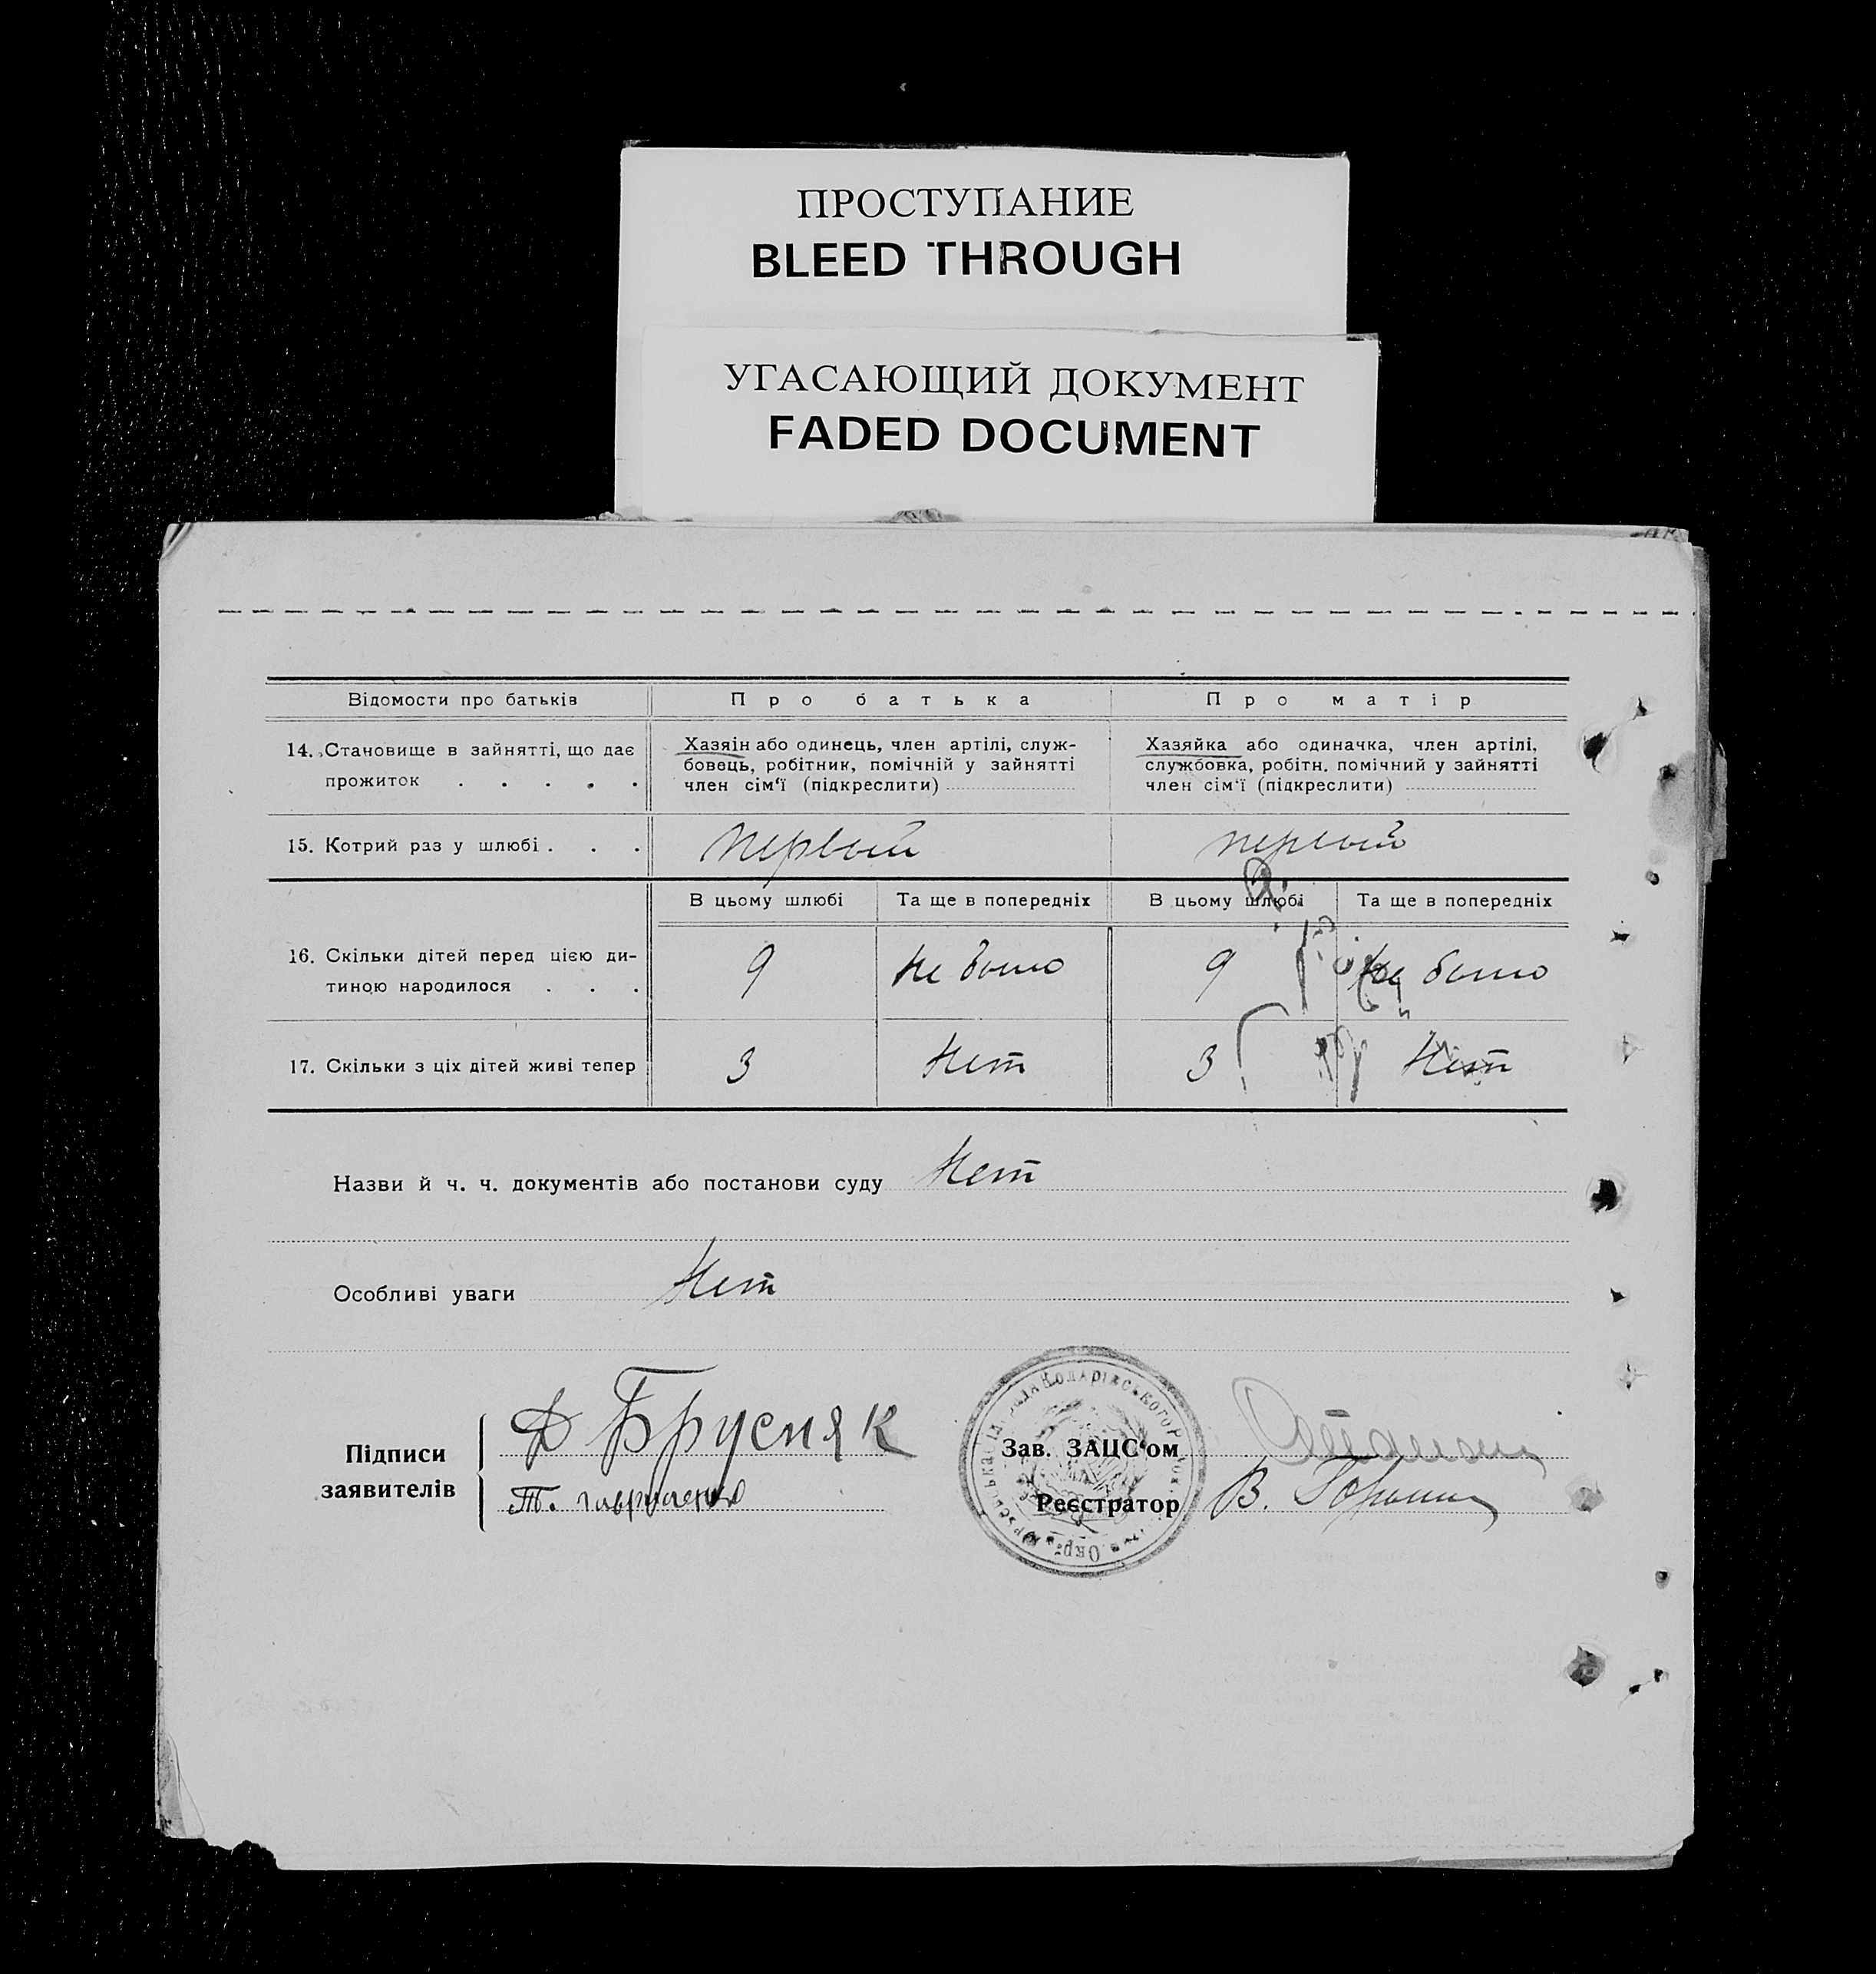 ПРОСТУПАНИЕ
BLEED THROUGH
УГАСАЮЩИЙ ДОКУМЕНТ
FADED DOCUMENT
Відомости про батьків Про батька Про матір
14. Становище в зайнятті, що дає прожиток . . . . .
Хазяін або одинець, член артілі, служ-
бовець, робітник, помічній у зайнятті
член сім‘ї (підкреслити)
Хазяйка або одиначка, член артілі,
службовка, робітн. помічний у зайнятті
член сім‘ї (підкреслити)
15. Котрий раз у шлюбі . . . первый первый
В цьому шлюбі Та ще в попередніх В цьому шлюбі Та ще в попередніх
16. Скільки дітей перед цією ди-
тиною народилося . . . 9 не было 9 не было
17. Скільки з ціх дітей живі тепер 3 Нет 3 Нет
Назви й ч. ч. документів або постанови суду Нет
Особливі уваги Нет
Підписи
заявителів
Д Брусняк
Т.
Зав. ЗАЦС‘ом
Реєстратор В.